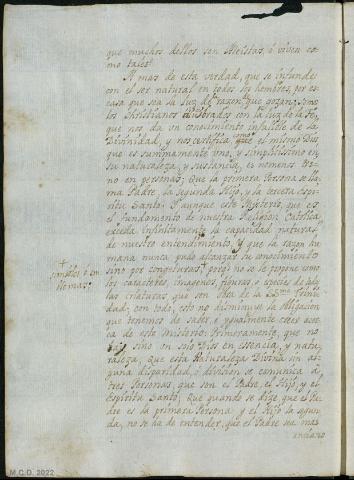 que muchos dellos son Ateistas, ó viven co-
mo tales.
A mas de esta verdad, que se infunde
con el ser natural en todos los hombres, por es-
casa que sea la luz de razon, que gozan; somos
los Christianos ilustrados con la luz de la Fe,
que nos da un conocimiento infalible de la
Divinidad, y nos certifica, que el mismo Dios,
que es summamente uno, y simplicissimo en
su naturaleza, y sustancia, es nomenos tri-
no en personas; Que la primera Persona se lla-
ma Padre, la segunda Hijo, y la tercera Espi-
ritu Santo. Y aunque este Misterio, que es
el fundamento de nuestra Religion Catolica,
exceda infinitamente la capacidad natural
de nuestro entendimiento, y que la razon hu-
mana nunca pudo alcanzar su conocimiento
sino por congeturas, pero no se le propone como
los caracteres, imagenes, figuras y especies de
las criaturas que son obra de la SSma Trini-
dad; con todo, esto no disminuye la obligacion
que tenemos de saber, y igualmente creer acer-
ca de este misterio: Primeramente, que no
hay sino un solo Dios en essencia, y natu-
raleza, Que esta Naturaleza Divina sin al-
guna disparidad, ó division se comunica á
tres Personas que son el Padre, el Hijo, y el
Espiritu Santo; Que quando se dize que el Pa-
dre es la primera Persona, y el Hijo la segun-
da, no se ha de entender, que el Padre sea mas
anciano
M.C.D. 2022